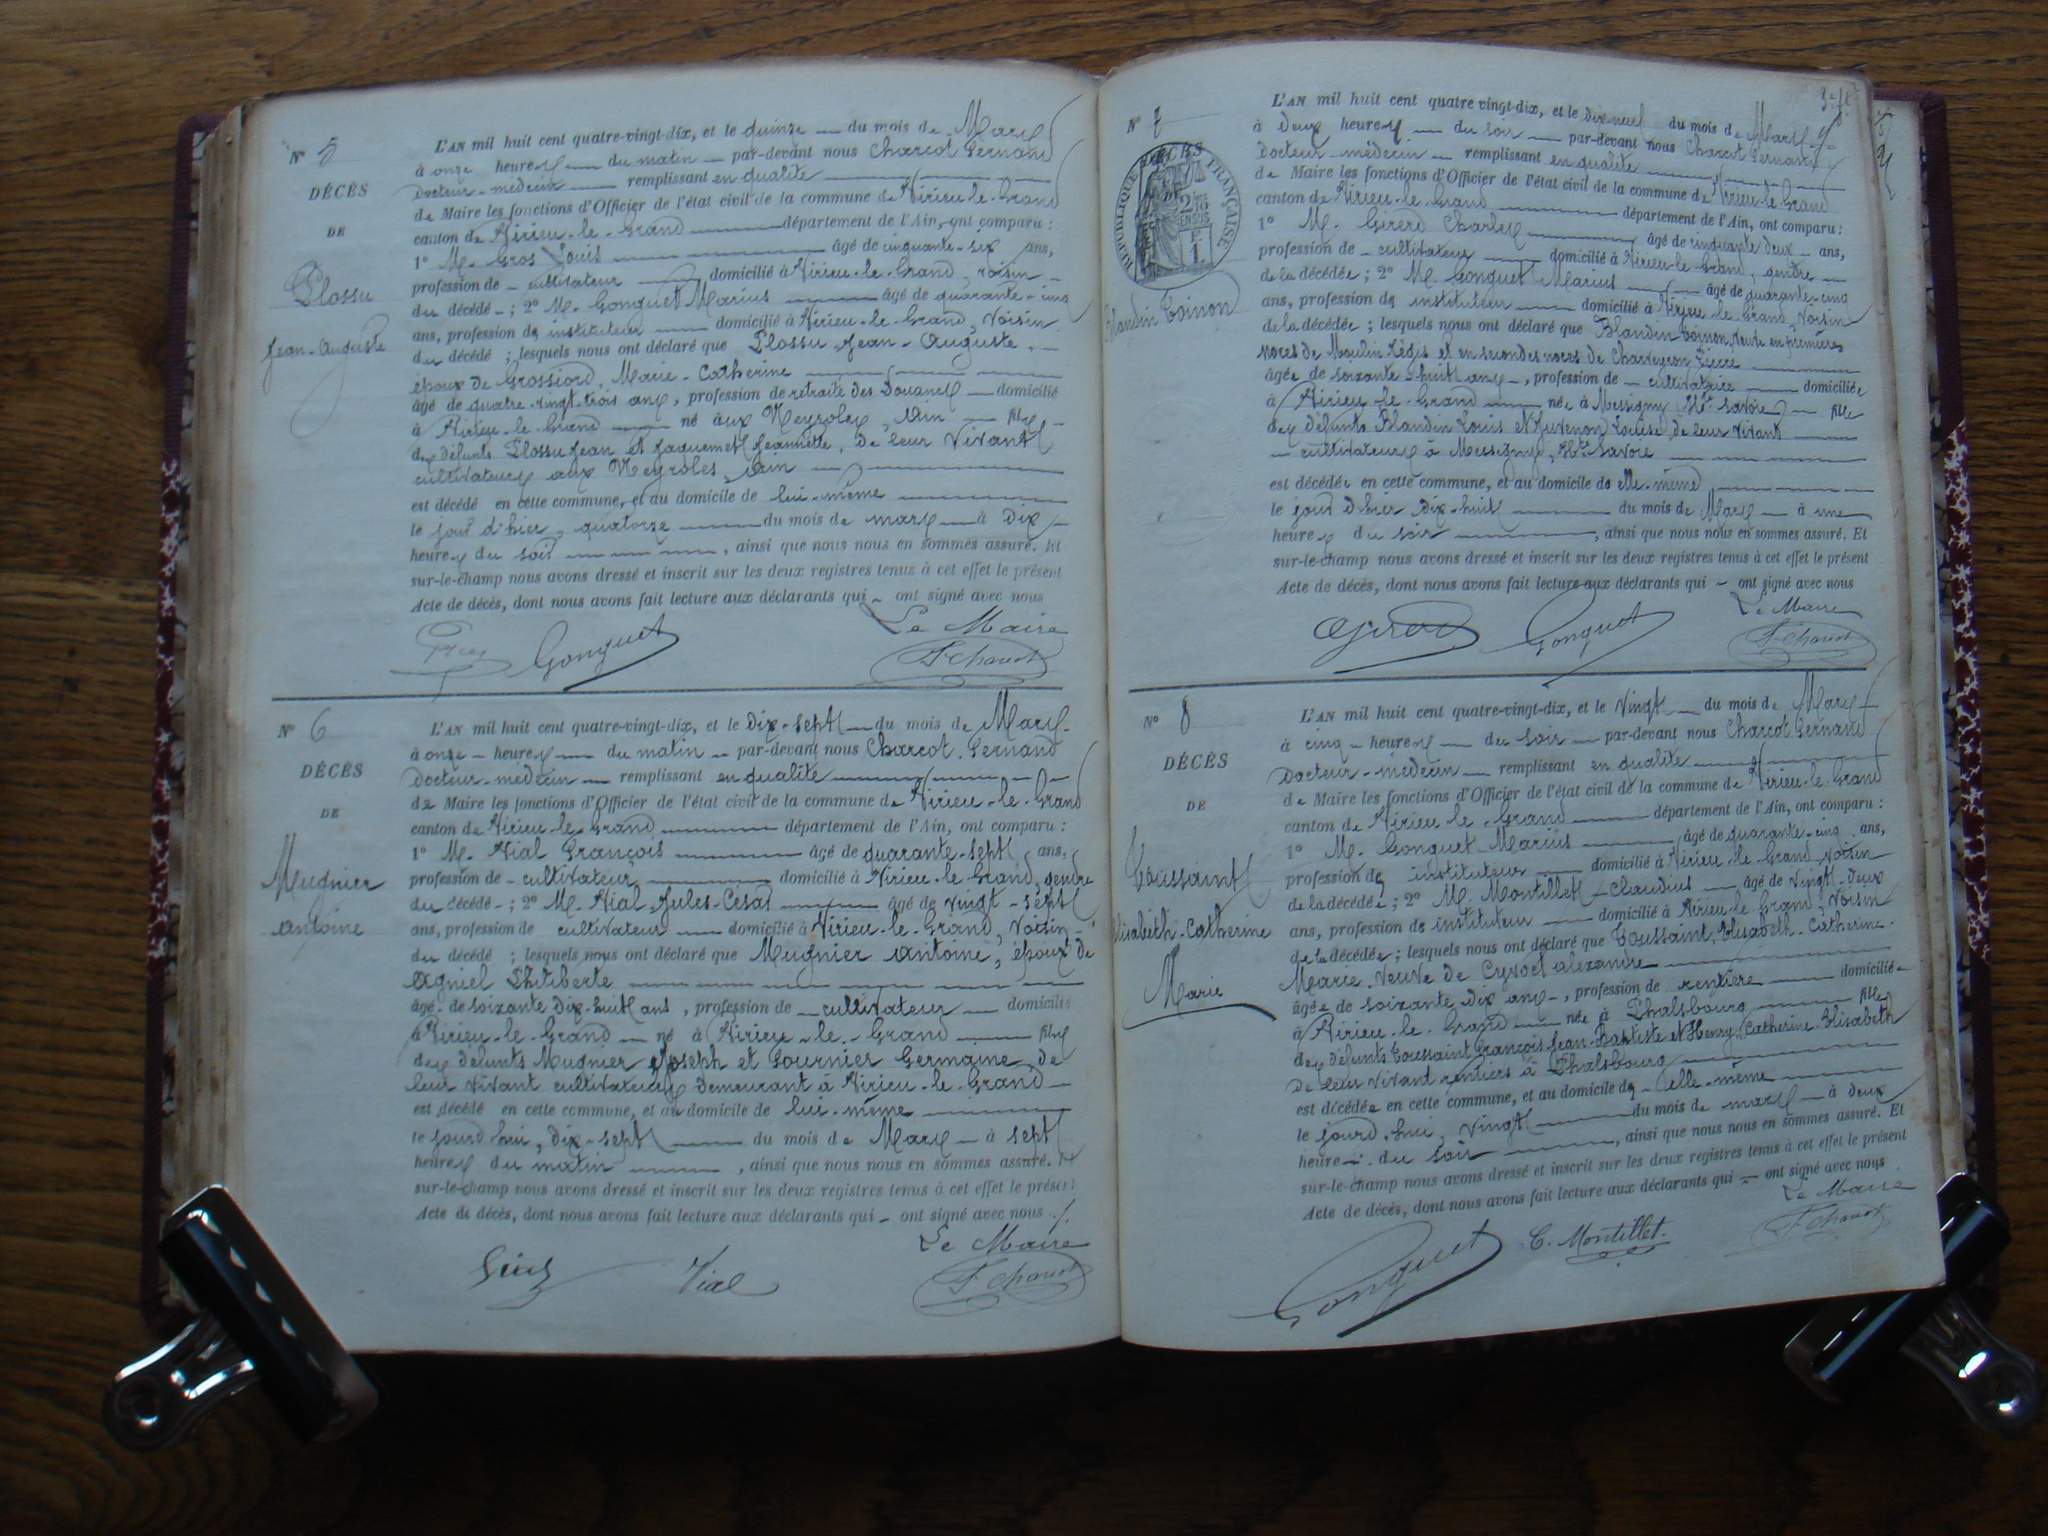 N° 5
DÉCÈS
DE
Plossu
Jean-Auguste
L'AN mil huit cent quatre-vingt-dix, et le quinze du mois de Mars
à onze heures du matin par-devant nous Charcot Fernand
Docteur-médecin remplissant en qualité
de Maire les fonctions d'Officier de l'état civil de la commune de Virieu-le-Grand
canton de Virieu-le-Grand département de l'Ain, ont comparu :
1° M. Gros Louis âgé de cinquante-six ans,
profession de cultivateur domicilié à Virieu-le-Grand, voisin
du décédé ; 2° M. Gonguet Marius âgé de quarante-cinq
ans, profession de instituteur domicilié à Virieu-le-Grand, Voisin
du décédé ; lesquels nous ont déclaré que Plossu Jean-Auguste,
époux de Grossiord, Marie-Catherine
âgé de quatre-vingt-trois ans, profession de retraité des Douanes domicilié
à Virieu-le-Grand né aux Neyroles, Ain fils
des défunts Plossu Jean et Jaquemet Jeannette, de leur Vivant
cultivateurs aux Neyroles, Ain
est décédé en cette commune, et au domicile de lui-même
le jour d'hier, quatorze du mois de mars à Dix
heures du soir, ainsi que nous nous en sommes assuré. Et
sur-le-champ nous avons dressé et inscrit sur les deux registres tenus à cet effet le présent
Acte de décès, dont nous avons fait lecture aux déclarants qui ont signé avec nous
Le Maire
Gros Gonguet F. Charcot
N° 6
DÉCÈS
DE
Mugnier
Antoine
L'AN mil huit cent quatre-vingt-dix, et le Dix-sept du mois de Mars
à onze heures du matin par-devant nous Charcot Fernand
Docteur-médecin remplissant en qualité
de Maire les fonctions d'Officier de l'état civil de la commune de Virieu-le-Grand
canton de Virieu-le-Grand département de l'Ain, ont comparu :
1° M. Vial François âgé de quarante-sept ans,
profession de cultivateur domicilié à Virieu-le-Grand, gendre
du décédé ; 2° M. Vial Jules-César âgé de vingt-sept
ans, profession de cultivateur domicilié à Virieu-le-Grand, Voisin
du décédé ; lesquels nous ont déclaré que Mugnier Antoine, époux de
Agniel Philiberte
âgé de soixante Dix-huit ans, profession de cultivateur domicilié
à Virieu-le-Grand né à Virieu-le-Grand fils
des défunts Mugnier Joseph et Fournier Germaine, de
leur vivant cultivateurs demeurant à Virieu-le-Grand
est décédé en cette commune, et au domicile de lui-même
le jourd'hui, dix-sept du mois de Mars à sept
heures du matin, ainsi que nous nous en sommes assuré. Et
sur-le-champ nous avons dressé et inscrit sur les deux registres tenus à cet effet le présent
Acte de décès, dont nous avons fait lecture aux déclarants qui ont signé avec nous
Le Maire
Vial F. Charcot
N° 7
RÉPUBLIQUE FRANÇAISE
Blandin Toinon
L'AN mil huit cent quatre vingt-dix, et le dix neuf du mois de Mars
à Deux heures du soir par-devant nous Charcot Fernand
Docteur-médecin remplissant en qualité
de Maire les fonctions d'Officier de l'état civil de la commune de Virieu-le-Grand
canton de Virieu-le-Grand département de l'Ain, ont comparu :
1° M. Girerd Charles âgé de cinquante deux ans,
profession de cultivateur domicilié à Virieu-le-Grand, gendre
de la décédée ; 2° M. Gonguet Marius âgé de quarante-cinq
ans, profession de instituteur domicilié à Virieu-le-Grand, Voisin
de la décédée ; lesquels nous ont déclaré que Blandin Toinon, Veuve en premières
noces de Moulin Régis et en secondes noces de Charveyron Pierre
âgée de soixante-huit ans, profession de cultivatrice domiciliée
à Virieu-le-Grand née à Messigny Hte Savoie fille
des défunts Blandin Louis et Juvenon Louise, de leur vivant
cultivateurs à Messigny, Hte Savoie
est décédée en cette commune, et au domicile de elle-même
le jour d'hier dix-huit du mois de Mars à une
heure du soir, ainsi que nous nous en sommes assuré. Et
sur-le-champ nous avons dressé et inscrit sur les deux registres tenus à cet effet le présent
Acte de décès, dont nous avons fait lecture aux déclarants qui ont signé avec nous
Le Maire
Girerd Gonguet F. Charcot
N° 8
DÉCÈS
DE
Toussaint
Elisabeth-Catherine
Marie
L'AN mil huit cent quatre-vingt-dix, et le Vingt du mois de Mars
à cinq heures du soir par-devant nous Charcot Fernand
Docteur-médecin remplissant en qualité
de Maire les fonctions d'Officier de l'état civil de la commune de Virieu-le-Grand
canton de Virieu-le-Grand département de l'Ain, ont comparu :
1° M. Gonguet Marius âgé de quarante-cinq ans,
profession de instituteur domicilié à Virieu-le-Grand, Voisin
de la décédée ; 2° M. Montillet Claudius âgé de Vingt-Deux
ans, profession de instituteur domicilié à Virieu-le-Grand, Voisin
de la décédée ; lesquels nous ont déclaré que Toussaint, Elisabeth-Catherine-
Marie, Veuve de Cyvoct alexandre
âgée de soixante dix ans, profession de rentière domiciliée
à Virieu-le-Grand née à Phalsbourg fille
des défunts Toussaint François Jean-Baptiste et Henry, Catherine Elisabeth
de leur vivant rentiers à Phalsbourg
est décédée en cette commune, et au domicile de elle-même
le jourd'hui, vingt du mois de mars à deux
heures du soir, ainsi que nous nous en sommes assuré. Et
sur-le-champ nous avons dressé et inscrit sur les deux registres tenus à cet effet le présent
Acte de décès, dont nous avons fait lecture aux déclarants qui ont signé avec nous
Le Maire
Gonguet C. Montillet F. Charcot